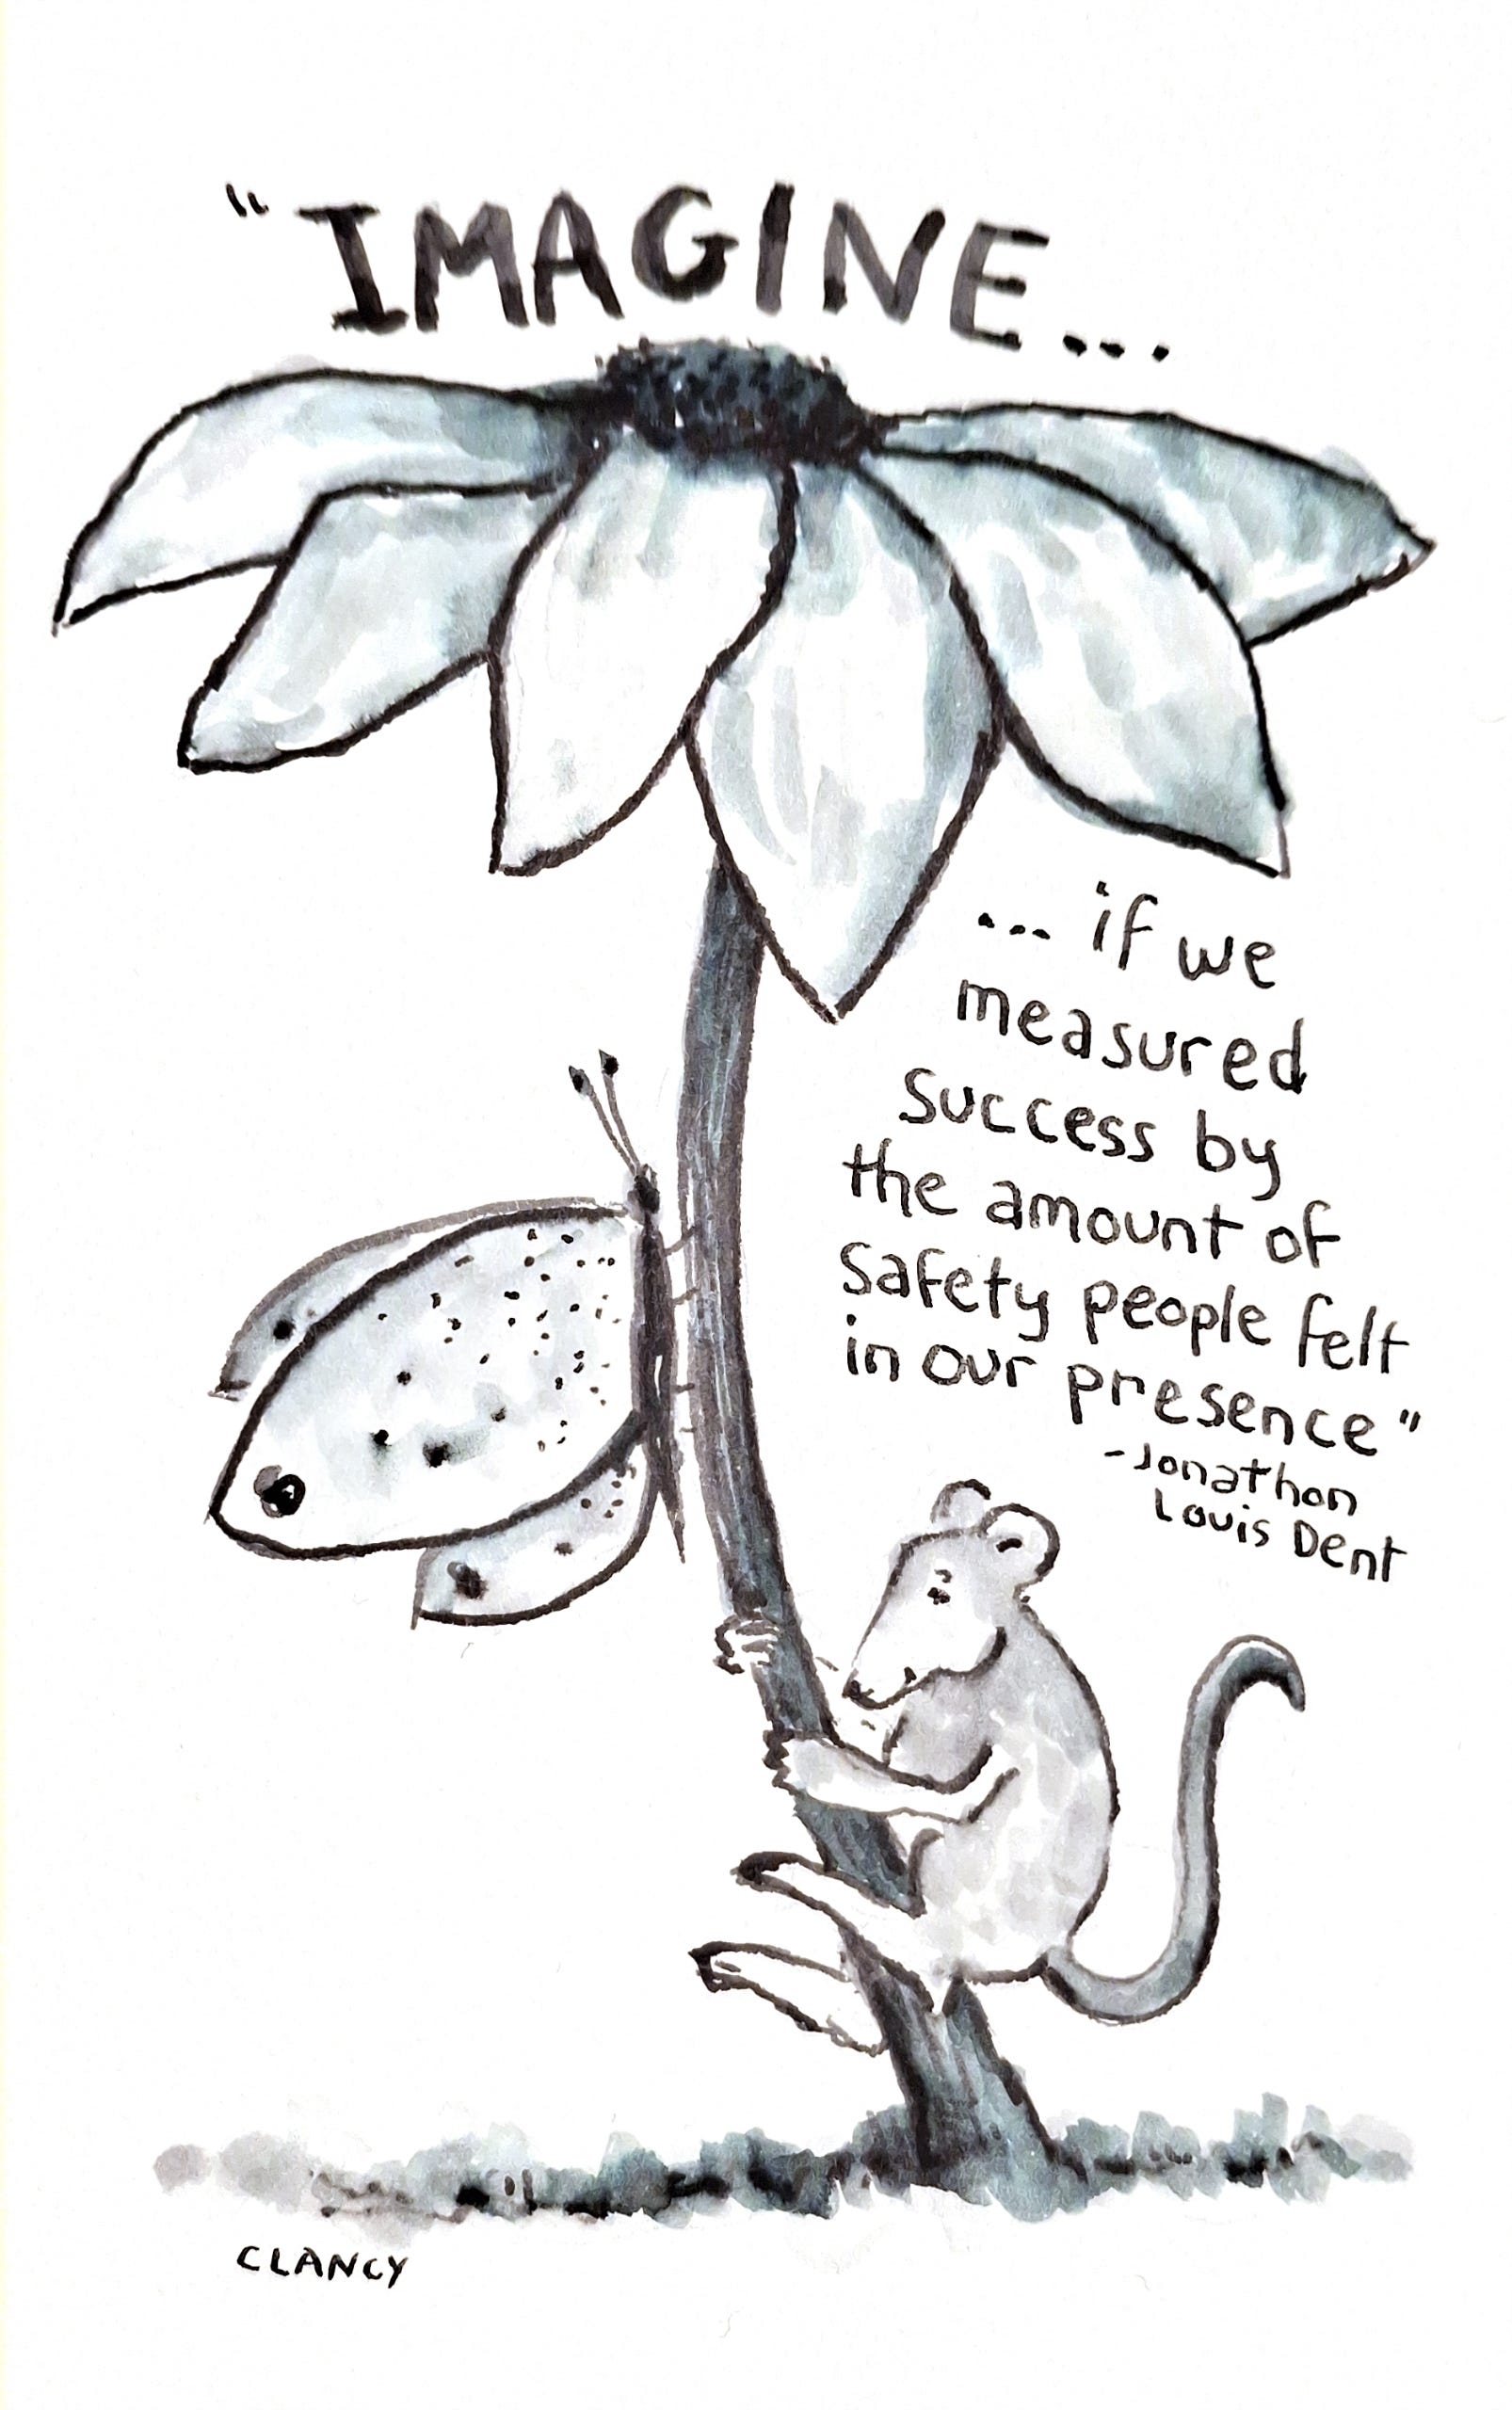 "IMAGINE...
... if we
measured
success by
the amount of
safety people felt
in our presence"
-Jonathon
Louis Dent
CLANCY